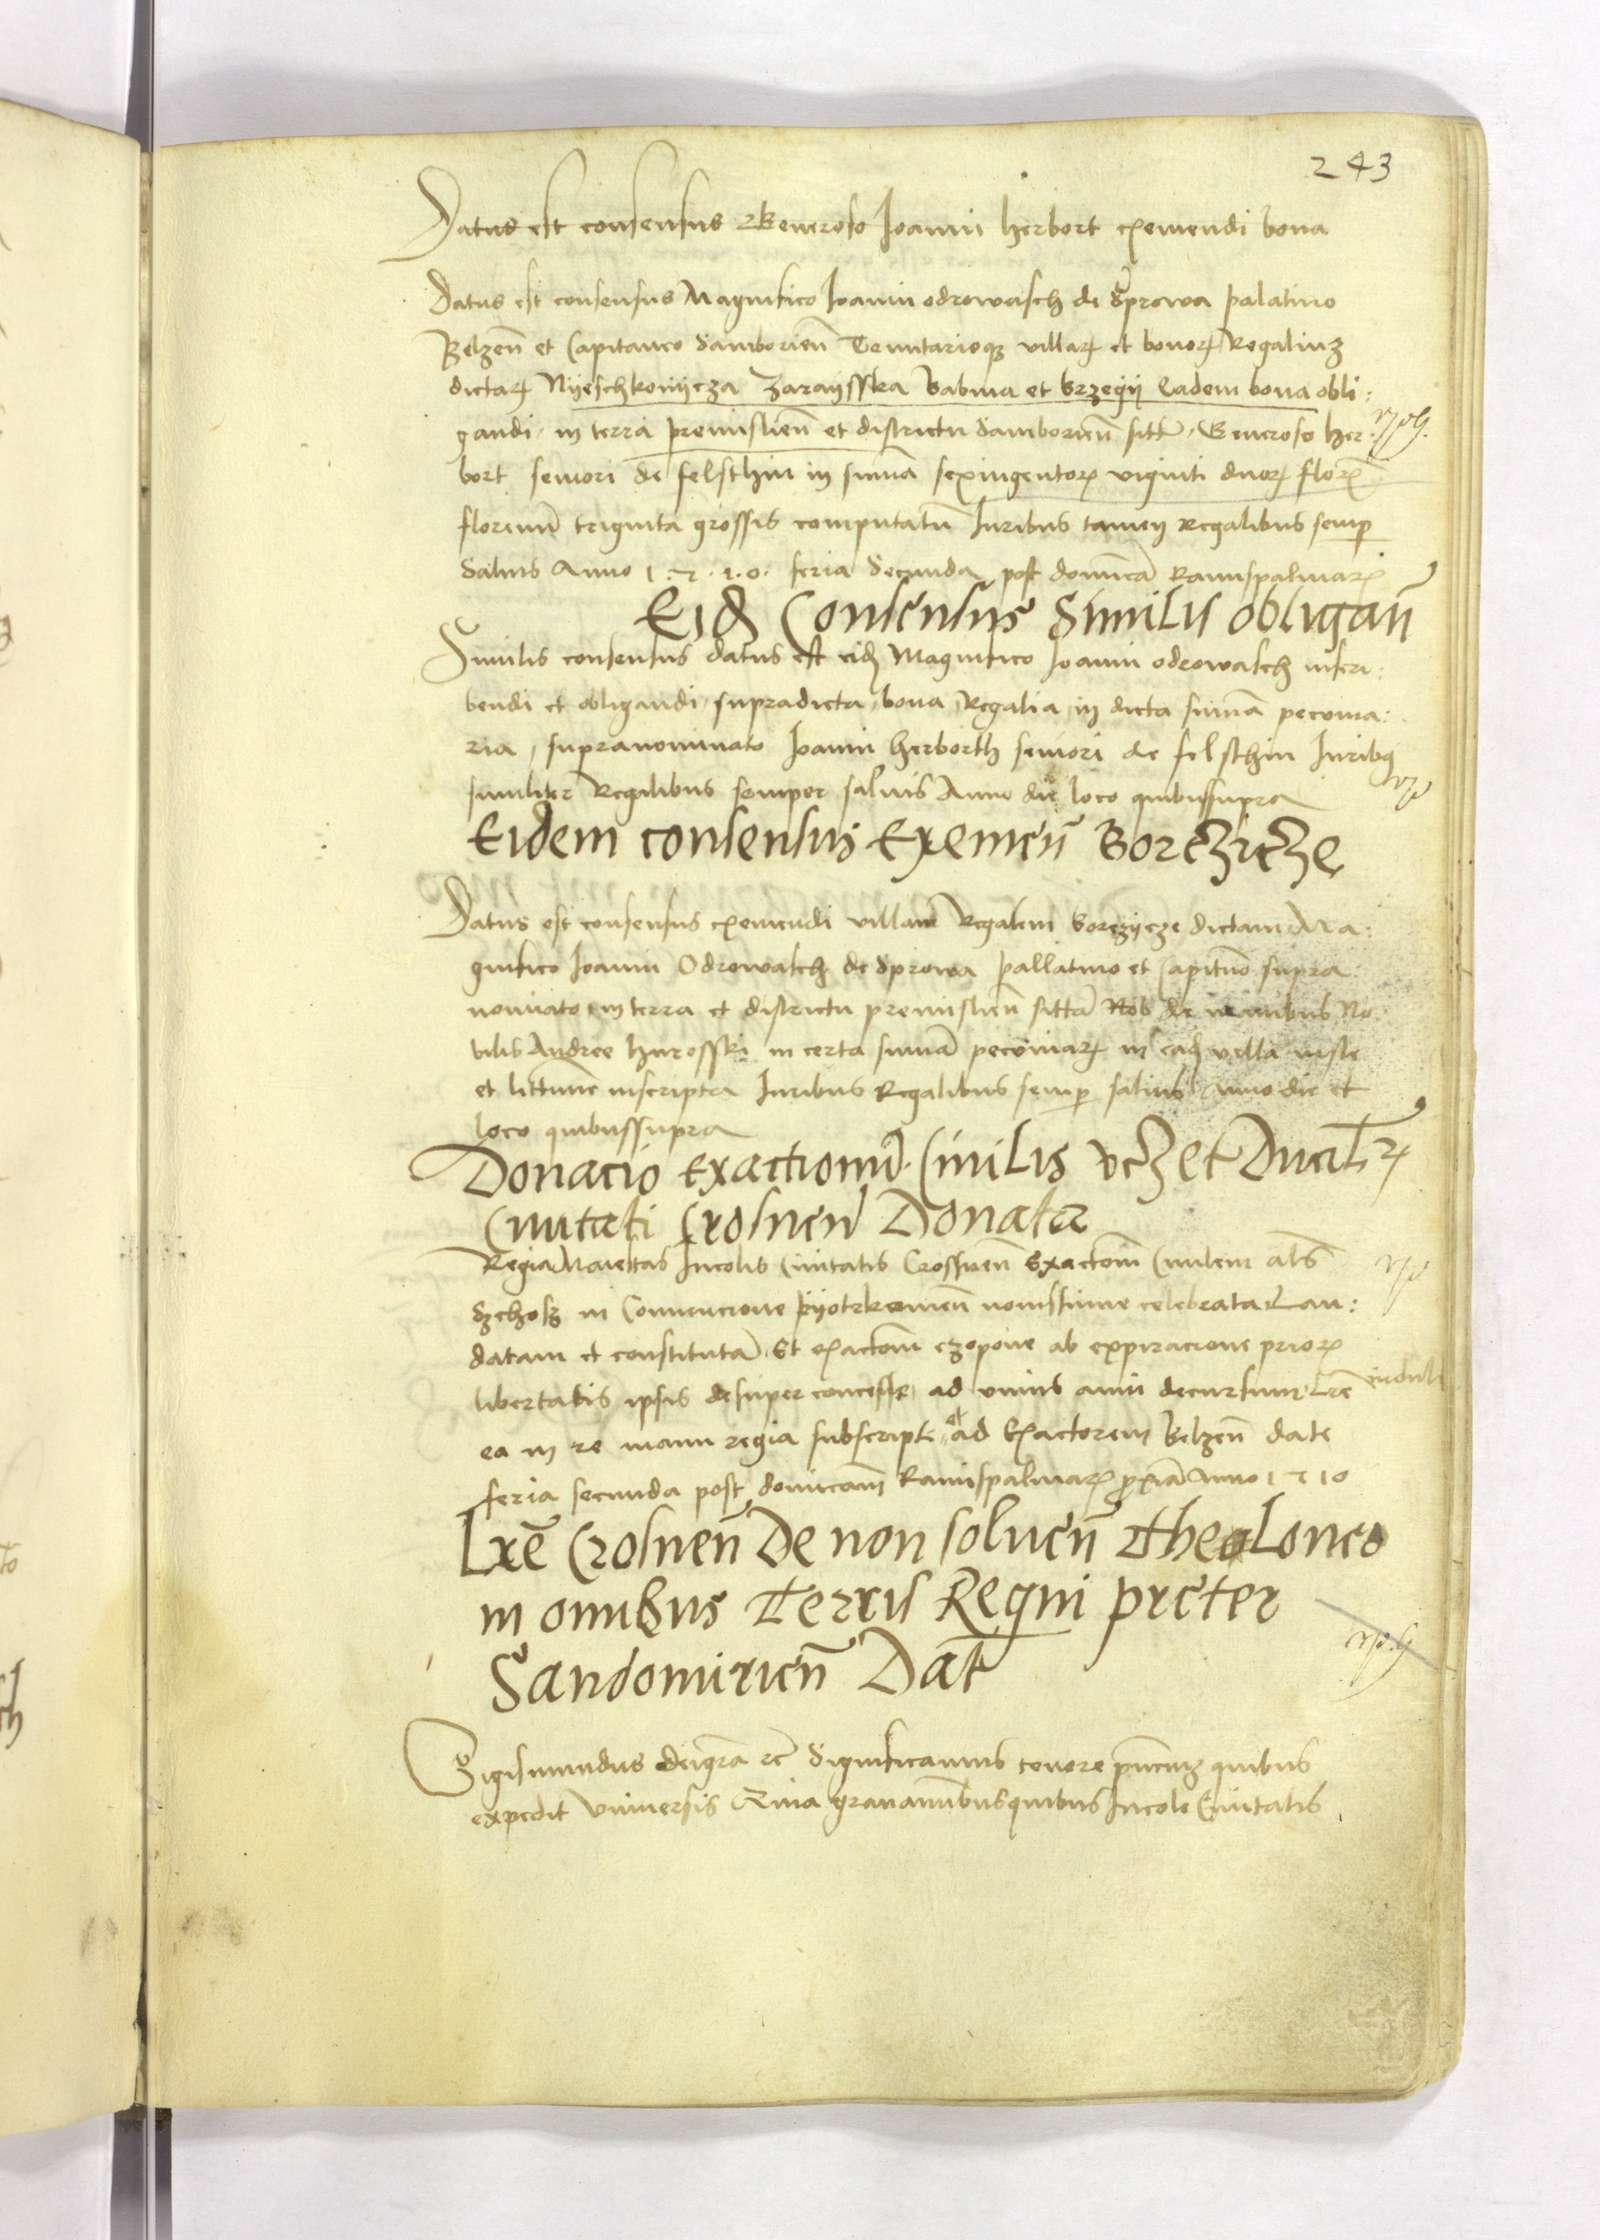 243
Datus est consensus Generoso Ioanni herbort exemendi bona
Datus est consensus Magnifico Ioanni odrowasch de Sprowa palatino
Belzeñ et Capitaneo Samborieñ Tenutarioq villarꝝ et bonorꝝ Regaliuz
dictarꝝ Nyeschkowycza Zaraysska Babina et Brzegij Eadem bona obli:
gandi in terra premislieñ et districtu Samborieñ sitt Generoso her:
bort seniori de felsthin in sumã sexingentorꝝ viginti duorꝝ florꝝ
florenũ triginta grossis computatũ Iuribus tamen regalibus semp
saluis Anno 1510 feria Secunda post dominicã Ramispalmarꝝ
Eidꝫ Consensus Similis obligañ
Similis consensus datus est eidꝫ Magnifico Ioanni odrowasch inscri:
bendi et obligandi supradicta bona Regalia in dicta sumã pecunia:
ria supranominato Ioanni herborth seniori de felsthin Iuribꝫ
similiter Regalibus semper saluis Anno die loco quibussupra
Eidem consensus Exemeñ Borczicze
Datus est consensus exemendi villam Regalem borczycze dictam Ma:
gnifico Ioanni Odrowasch de Sprowa pallatino et Capitneo supra
nominato in terra et districtu premislieñ sittã de manibus No
bilis Andree hurosski in certa sumã pecuniarꝝ in eadꝫ villa
et inscripta Iuribus Regalibus semp saluis Anno die et
loco quibussupra
Donacio Exactionũ Ciuilis et Ducilꝝ
Ciuitati Crosneñ Donata
Regia Maiestas Incolis Ciuitatis Crosneñ Exactom Ciuilem als
Szchosz in Conuencione pyotrkouieñ nouissime celebrata Lau:
datam et constitutã Et exactom czopone ab expiracione priorꝝ
libertatis ipsis desuper concesse ad vnius anni decursum Lre
ea in re manu regia subscripte et ad Exactorem Belzeñ date
feria secunda post dominicam Ramispalmarꝝ Anno 1510
Lrẽ Crosneñ De non soluen Theoloneo
in omibus Terris Regni preter
Sandomirieñ Dat
Sigismundus deigra Significamus tenore pñtiuz quibus
expedit vniuersis Quia quibus Incole Ciuitatis